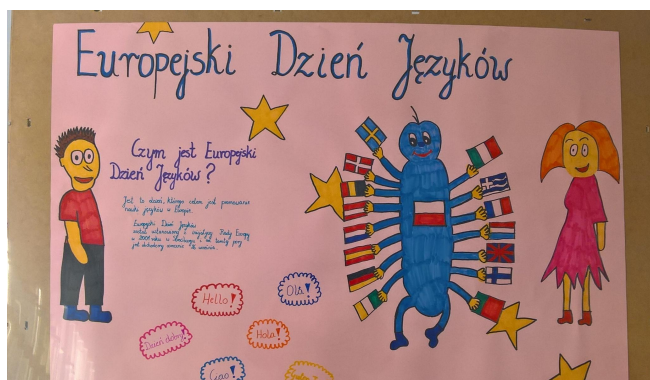 Europejski Dzień Języków
Czym jest Europejski
Dzień Języków?
Jest to dzień, którego celem jest promowanie
nauki języków w Europie.
Europejski Dzień Języków
został ustanowiony z inicjatywy Rady Europy
w 2001 roku i
jest obchodzony 26 września.
Hello!
Olá!
Dzień dobry
Hola!
Ciao!